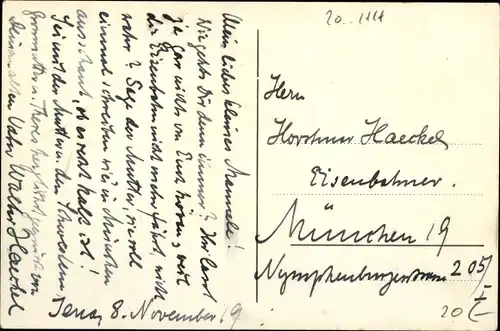 Mein liebes kleines
Wie geht's Dir denn immer? Ihr lasst
ja gar nichts von Euch hören, weil
die Eisenbahn nicht mehr fährt, nicht
wahr? Sage der Mutter, sie soll
einmal schreiben wie's in München
ausschaut, ob es recht kalt ist!
Sei mit der Mutter, den Schwestern
Grossmutter u. herzlichst gegrüsst von
Deinem alten Vater Walter Haeckel
Jena, 8. November 19
Herrn
Horstmar Haeckel
Eisenbahner.
München 19
Nymphenburgerstrasse 205/I
20